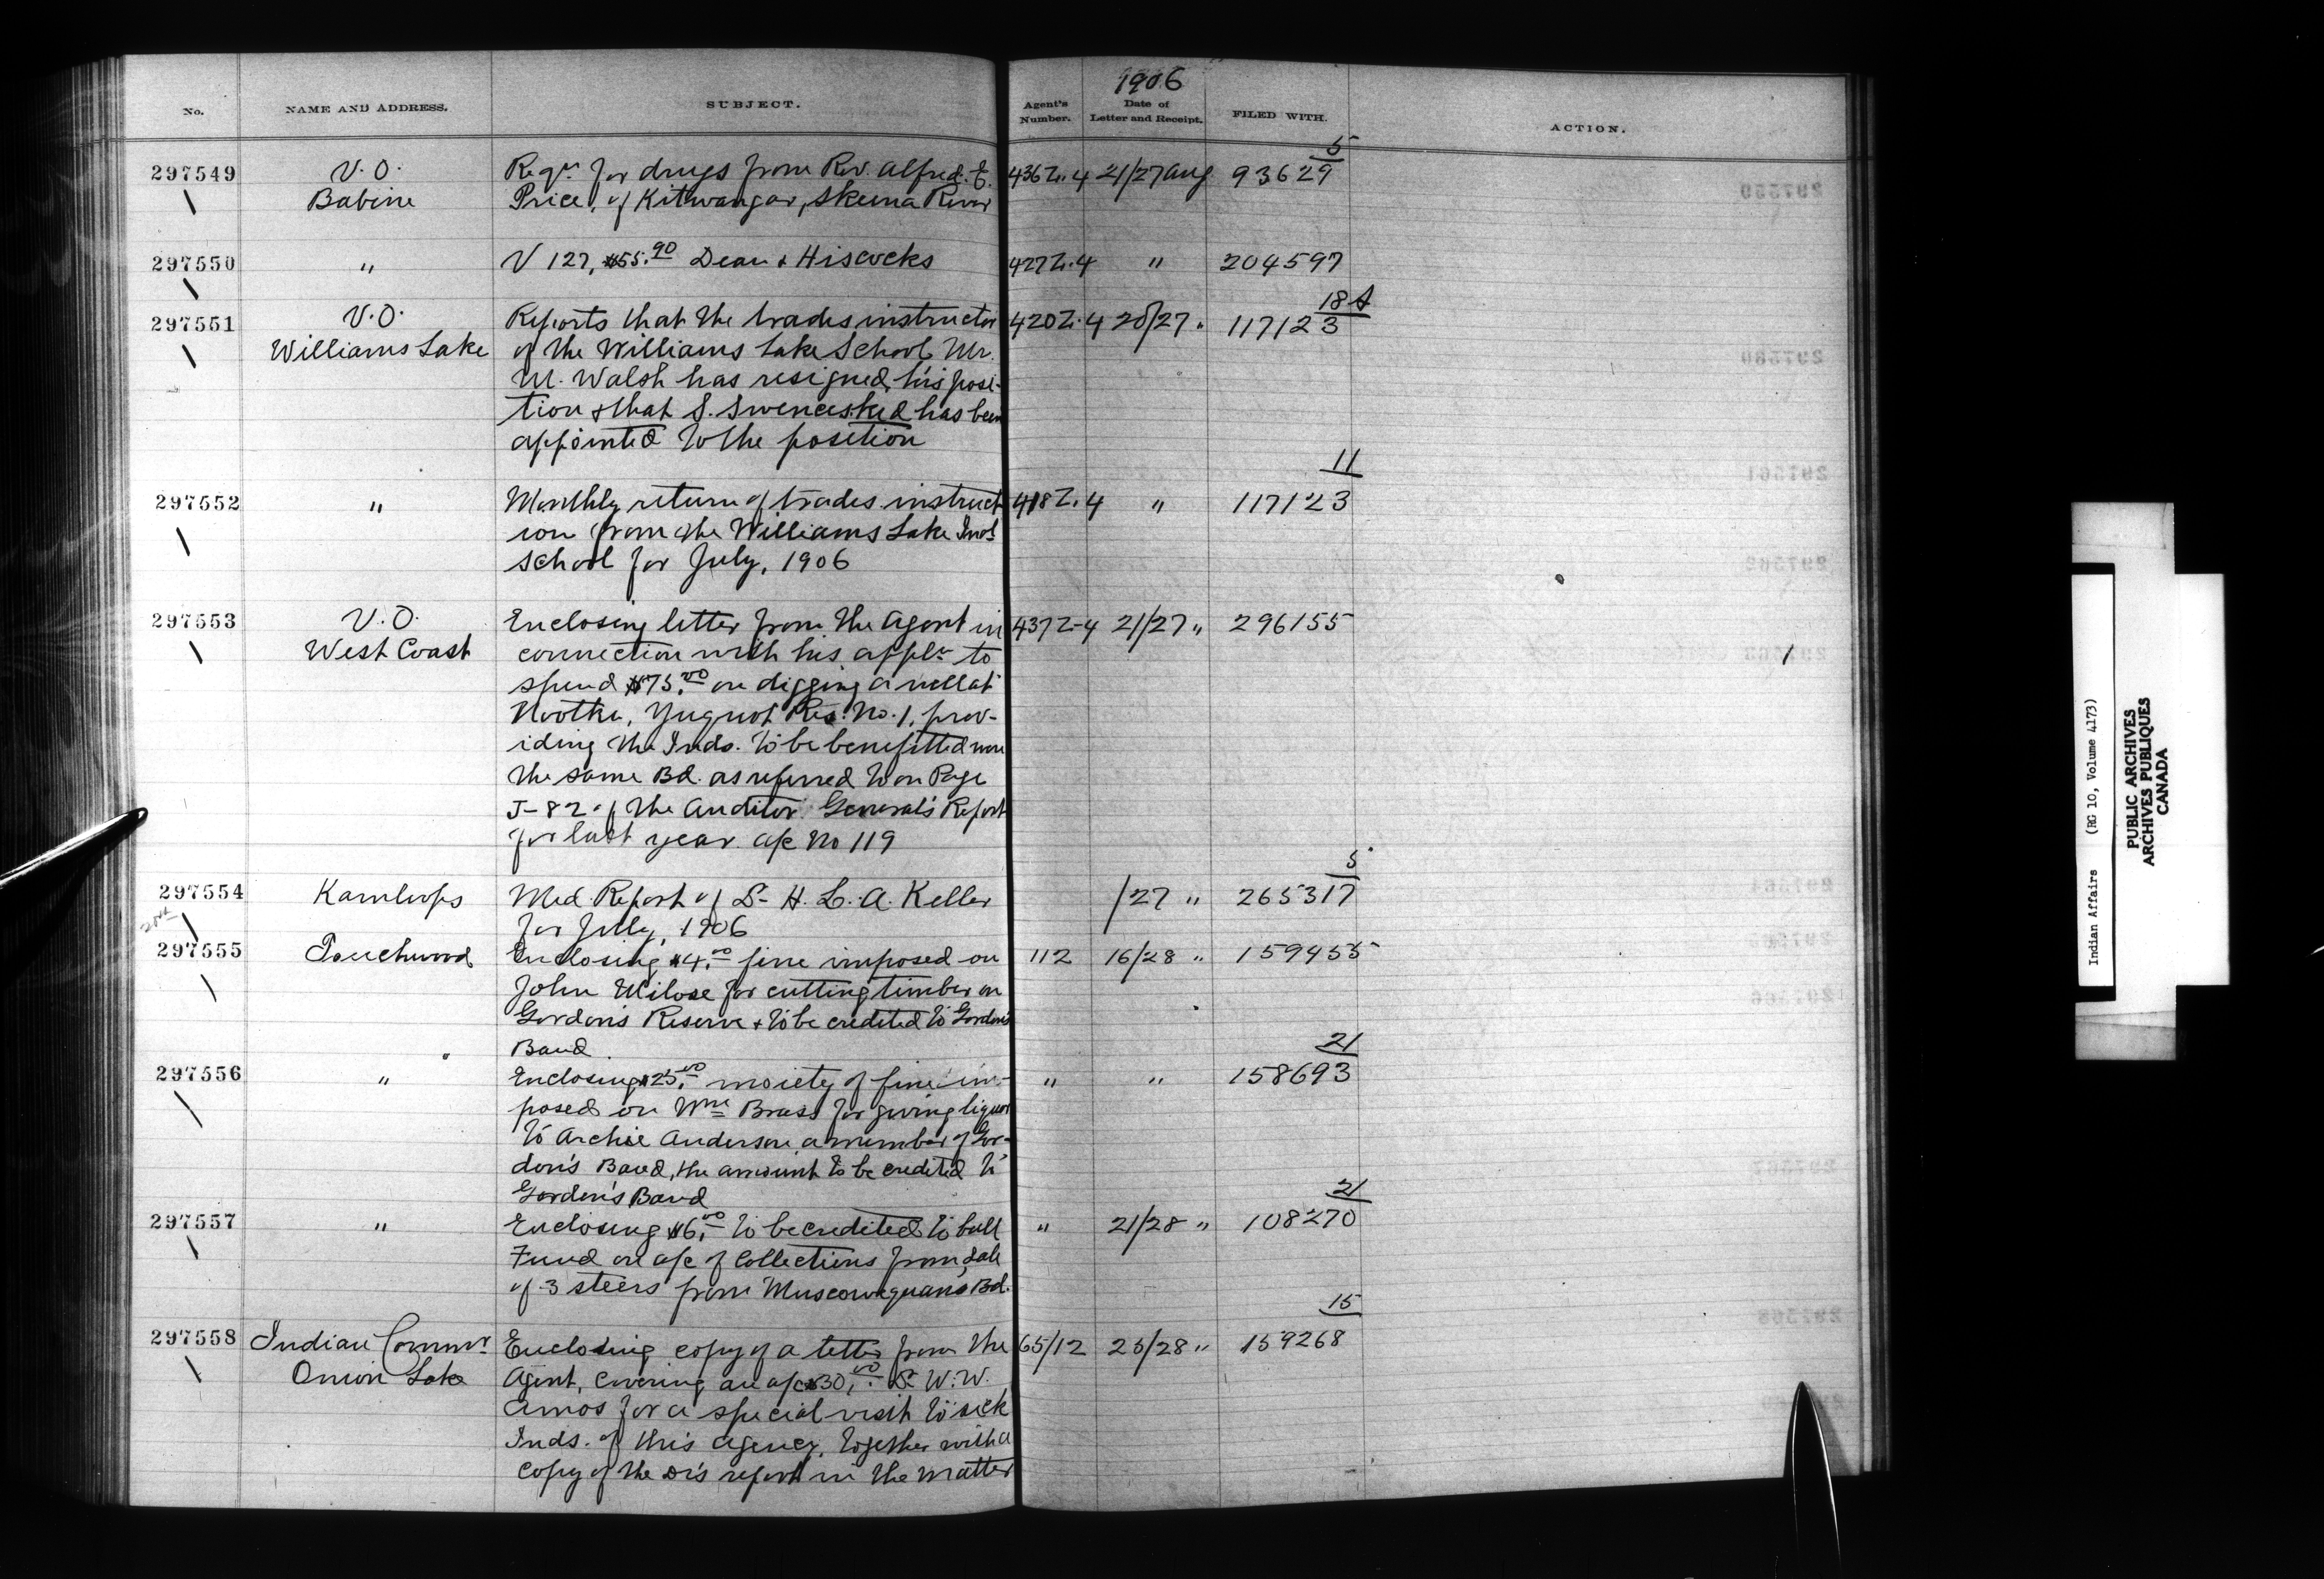 1906
No. NAME AND ADDRESS. SUBJECT. Agent's Number. Date of Letter and Receipt. FILED WITH. ACTION.
5
297549 V.O. Reqn. for drugs from Rev. Alfred. E. 436 Z.4 21/27 Aug 93629
Babine Price, of Kitwangar, Skeena River
297550 " V 127, $55.90 Dean & Hiscocks 427 Z.4 " 204597
18 A
297551 V.O. Reports that the trades instructor 420 Z.4 20/27 " 117123
Williams Lake of the Williams Lake School Mr.
M. Walsh has resigned his posi-
tion & that S. has been
appointed to the position
11
297552 " Monthly return of trades instruct- 418 Z.4 " 117123
ion from the Williams Lake Indl
School for July, 1906
297553 V.O. Enclosing letter from the Agent in 437 Z-4 21/27 " 296155
West Coast connection with his appln to
spend $75.00 on digging a well at
Nootka, Yuquot Res. No. 1, prov-
iding the Inds. to be benefitted were
the same Bd. as referred to on Page
J-82 of the Auditor General's Report
for last year a/c No 119
5
297554 Kamloops Med. Report of Dr H. L. A. Keller /27 " 265317
for July, 1906
297555 Touchwood Enclosing $4.00 fine imposed on 112 16/28 " 159455
John for cutting timber on
Gordon's Reserve & to be credited to Gordon's
Band.
21
297556 " Enclosing $25.00 moiety of fine im- " " 158693
posed on Wm Brass for giving liquor
to Archie Anderson, a member of Gor-
don's Band, the amount to be credited to
Gordon's Band
21
297557 " Enclosing $6.00 to be credited to bull " 21/28 " 108270
Fund on a/c of Collections from sale
of 3 steers from Muscowequan's Bd.
15
297558 Indian Commr Enclosing copy of a letter from the 65/12 25/28 " 159268
Onion Lake Agent, covering an a/c $30.00 Dr W.W.
Amos for a special visit to sick
Inds. of this agency, together with a
copy of the Dr's report in the matter
Indian Affairs (RG 10, Volume 4173)
PUBLIC ARCHIVES
ARCHIVES PUBLIQUES
CANADA